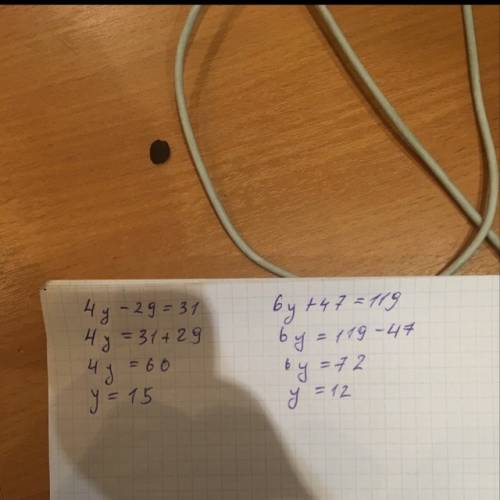 4y - 29 = 31
4y = 31 + 29
4y = 60
y = 15
6y + 47 = 119
6y = 119 - 47
6y = 72
y = 12